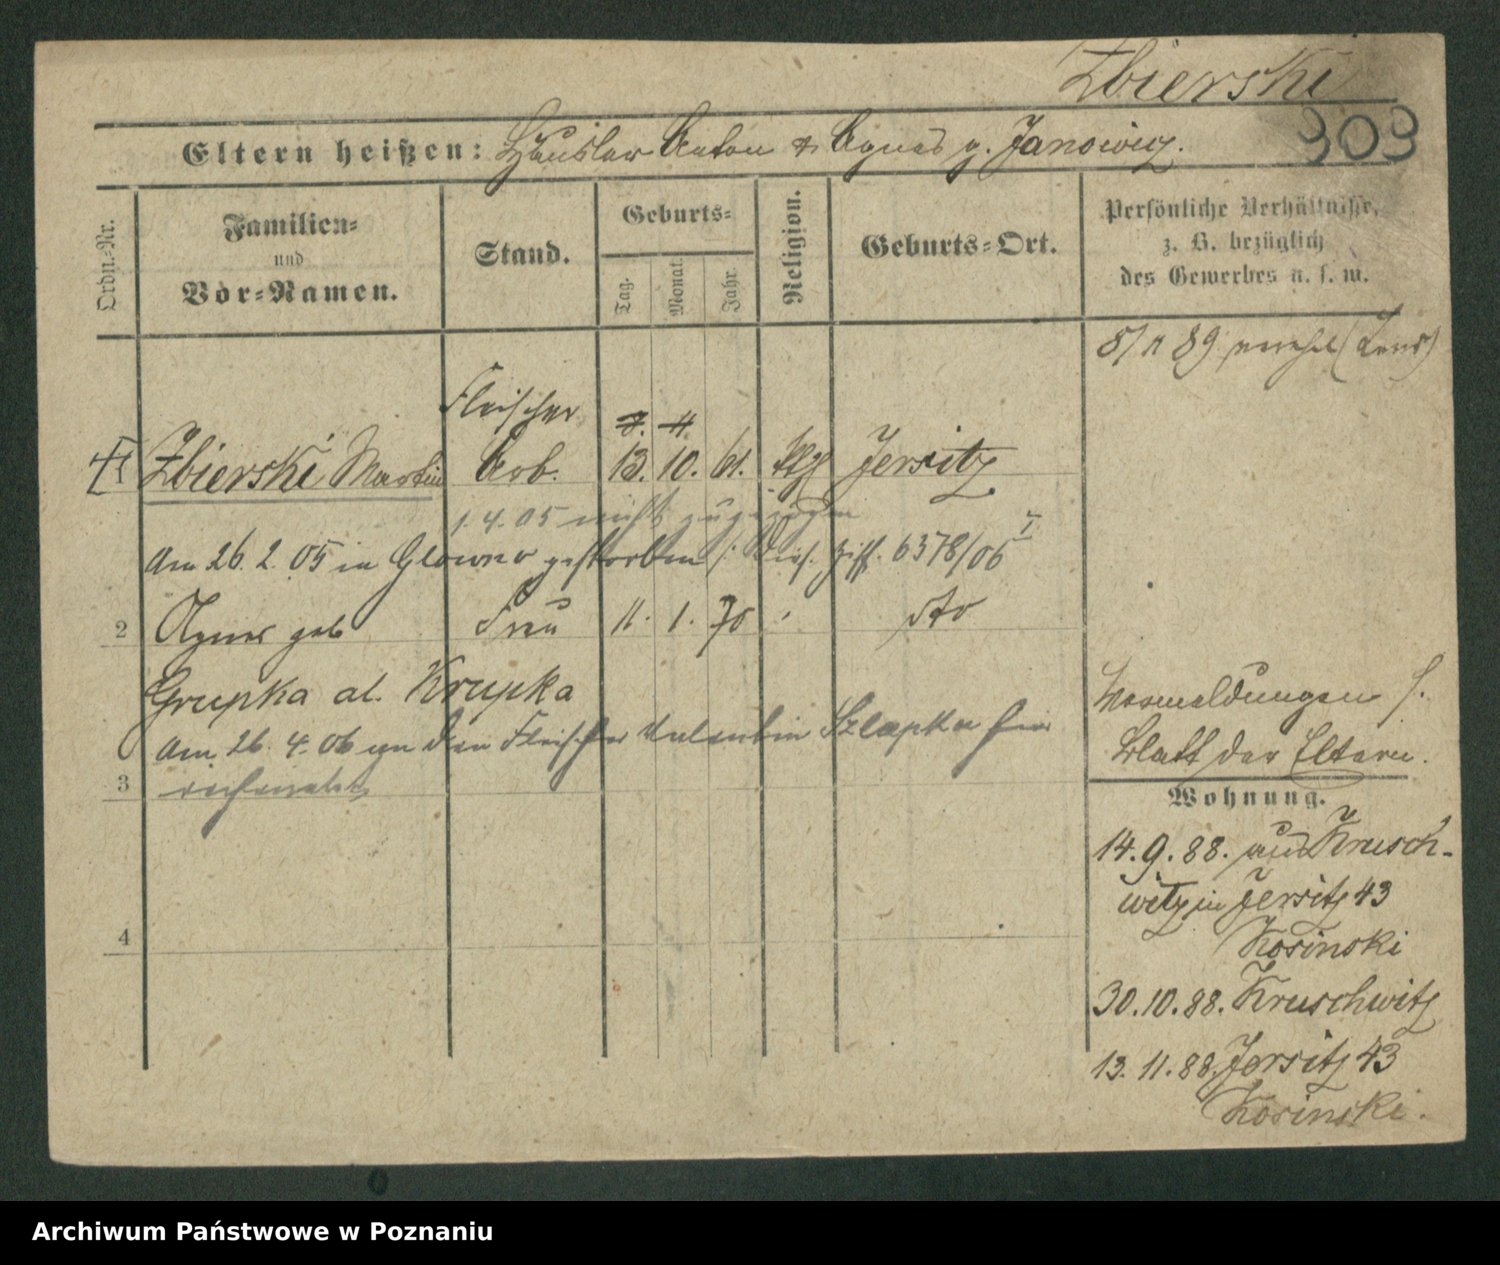 Zbierski
303
Eltern heißen: Häusler Anton & Agnes g. Janowicz.
Ordn.-Nr.
Familien-
und
Vor-Namen.
Stand.
Geburts-
Tag.
Monat.
Jahr.
Religion.
Geburts-Ort.
Persönliche Verhältnisse,
z. B. bezüglich
des Gewerbes u. s. w.
8/11 89
Fleischer
7. 11.
Zbierski Martin Arb. 13. 10. 61. Jersitz
1.4.05 nicht zugezogen
Am 26. 2. 05 in Glowno gestorben 6378/06 I
2 Agnes geb Frau 11. 1. 70 dto
Grupka al. Krupka
Am 26. 4. 06 an den Fleischer Valentin Szlapka hier
3
4
Vormeldungen s.
Blatt der Eltern.
Wohnung.
14.9.88. aus Krusch-
witz in Jersitz 43
Kosinski
30.10.88. Kruschwitz
13.11.88. Jersitz 43
Kosinski.
Archiwum Państwowe w Poznaniu